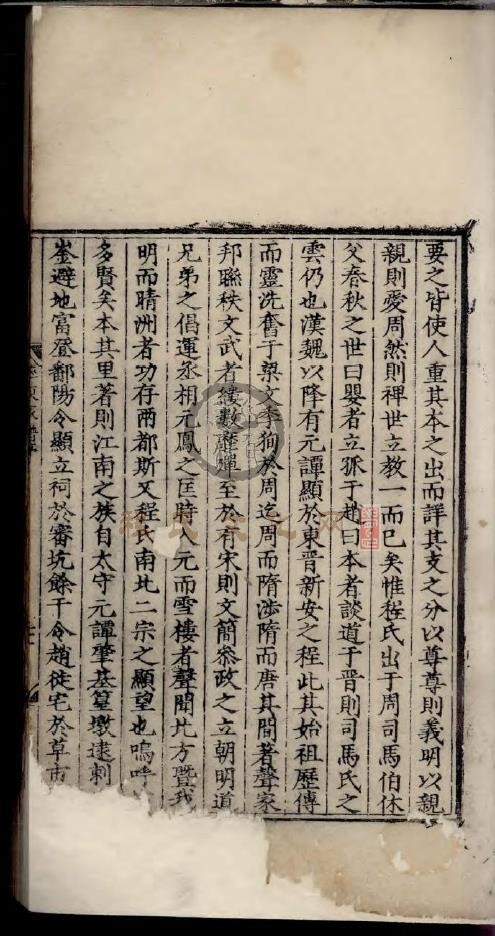 要之皆使人重其本之出而詳其支之分以尊尊則義明以親
親則愛周然則禪世立教一而已矣惟程氏出于周司馬伯休
父春秋之世曰嬰者立孤于趙曰本者談道于晋則司馬氏之
雲仍也漢魏以降有元譚顯於東晋新安之程此其始祖歷傳
而靈洗奮于梁文季狥於周迄周而隋涉隋而唐其間著聲家
邦聯秩文武者搂數靡殫至於有宋則文簡叅政之立朝明道
兄弟之倡運丞相元鳳之匡時入元而雪樓者聲聞北方暨我
明而晴洲者功存兩都斯又程氏南北二宗之顯望也嗚呼
多賢矣本其里著則江南之族自太守元譚肇基篁墩逮刺
崟避地富登鄱陽令顯立祠於審坑餘干令趙徙宅於草市